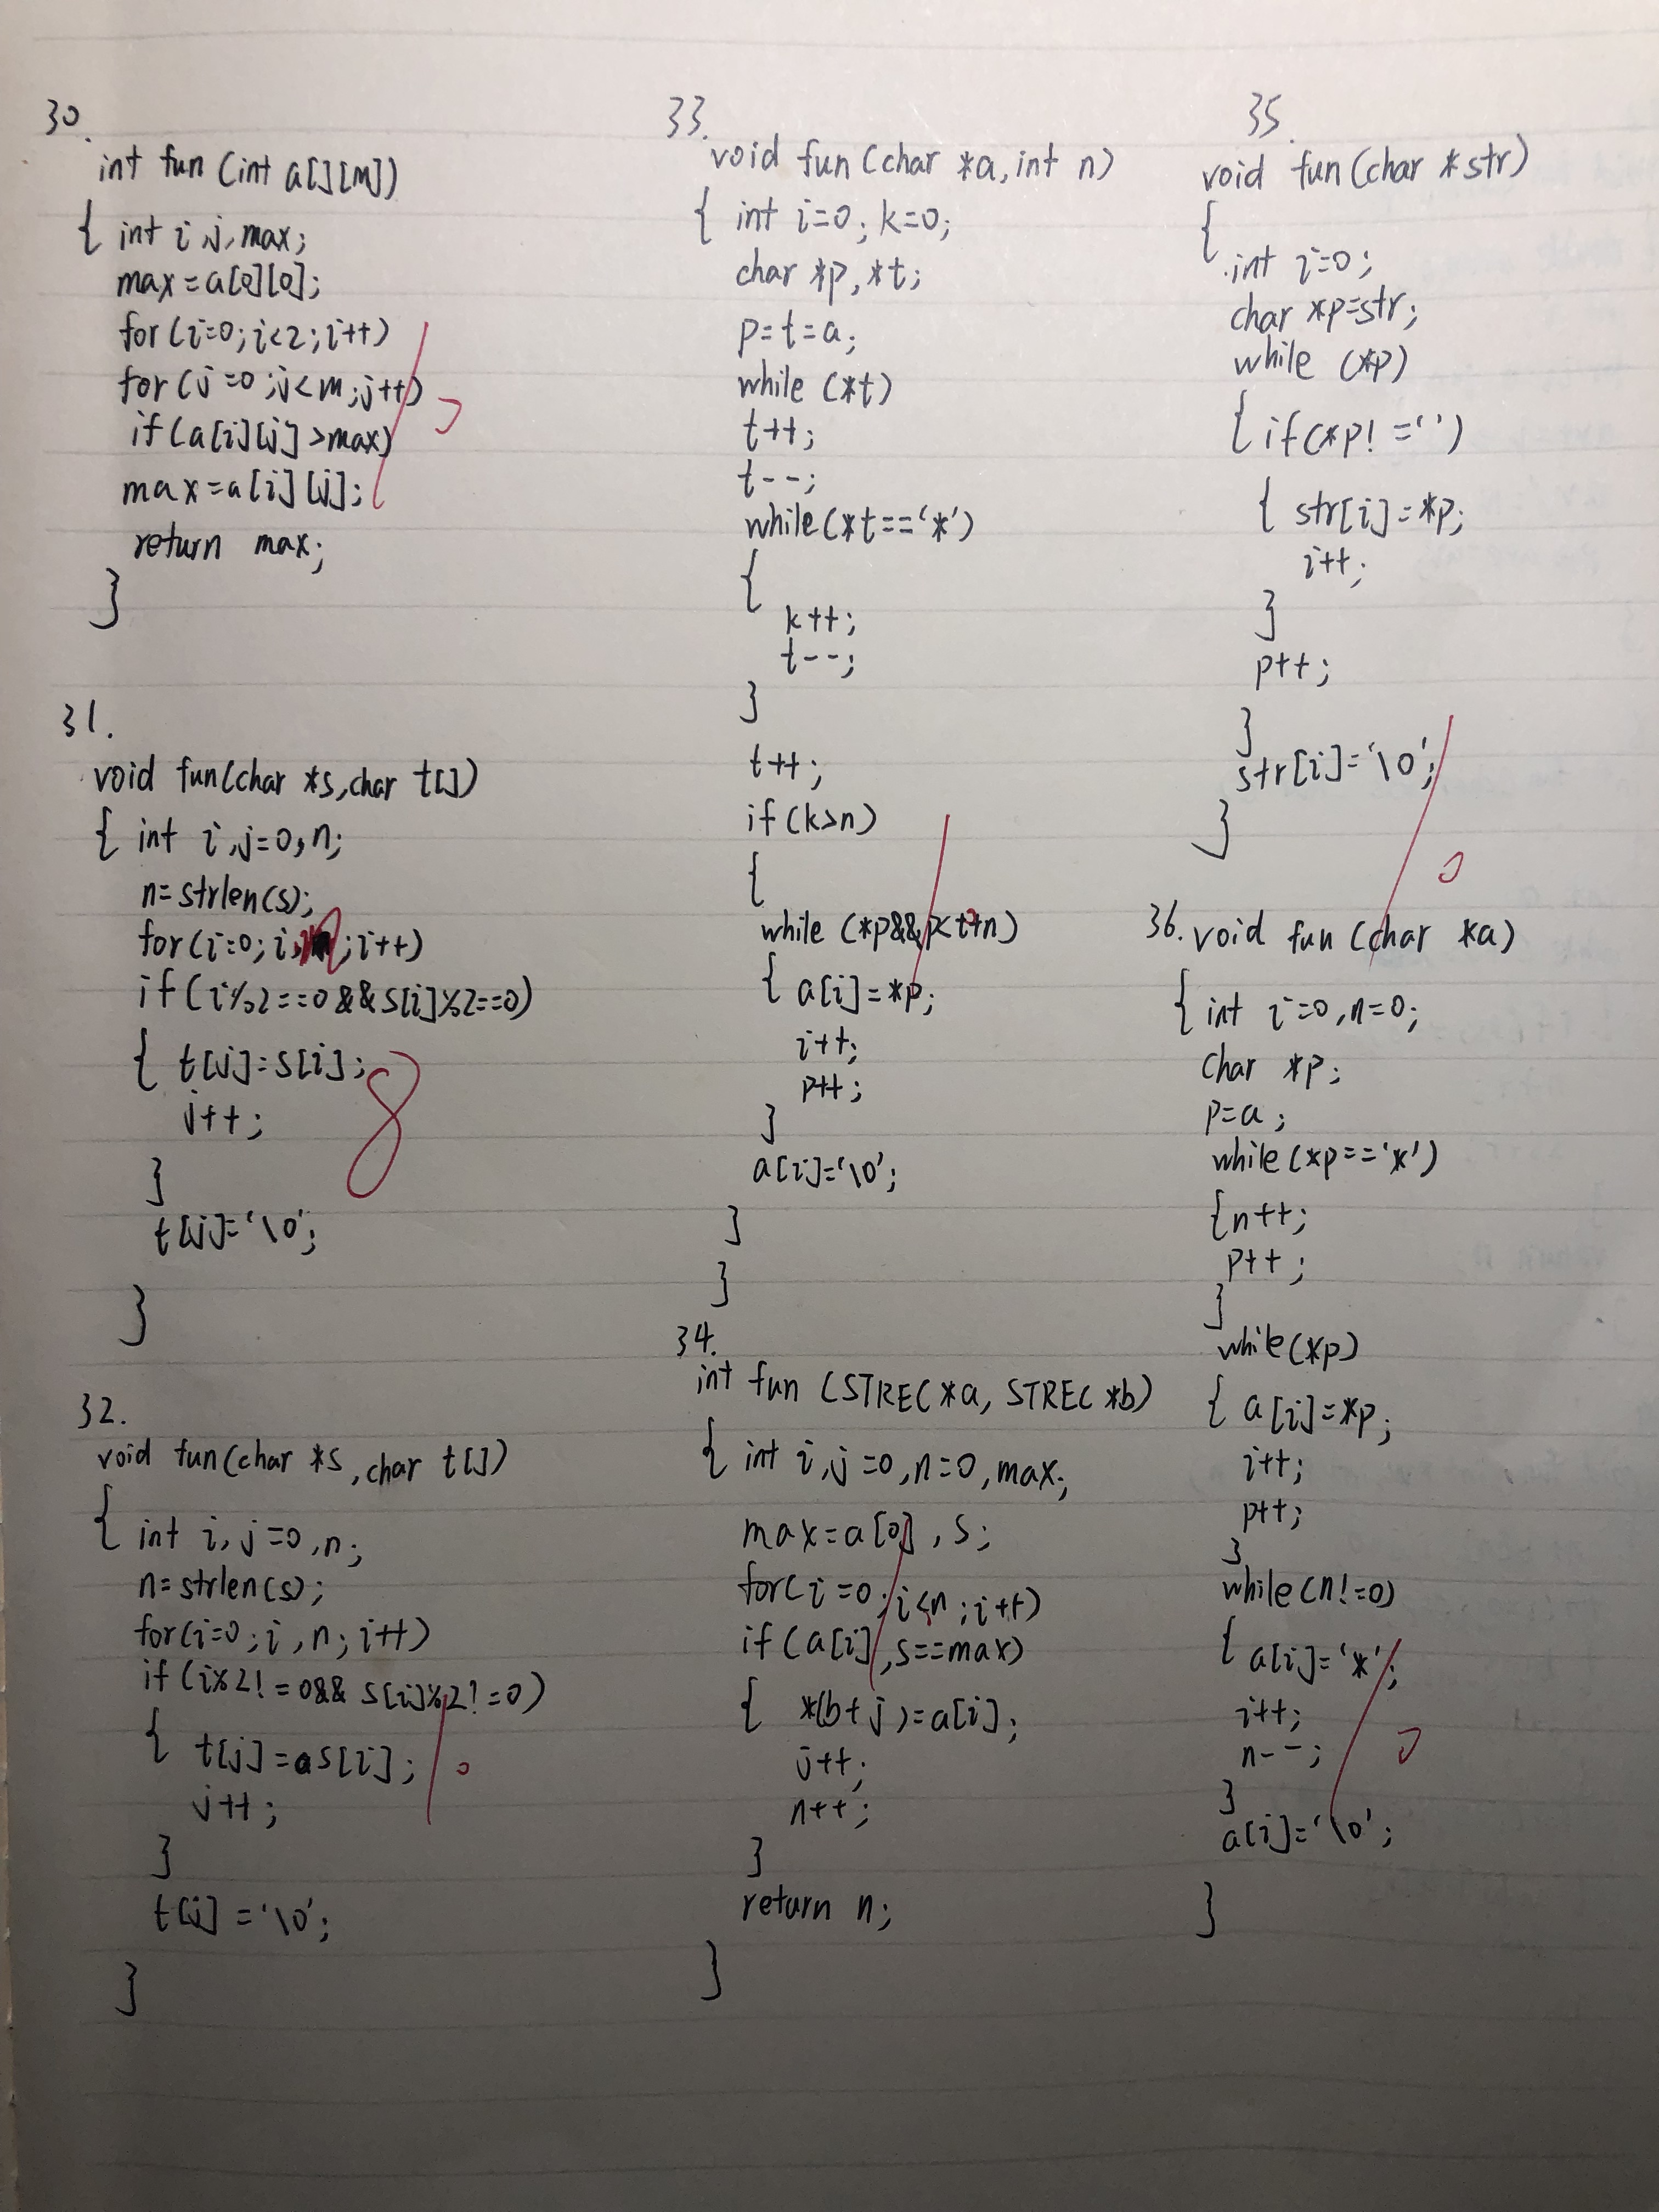 30.
int fun (int a[][M])
{ int i,j,max;
max=a[0][0];
for(i=0;i<2;i++)
for(j=0;j<m;j++)
if(a[i][j]>max)
max=a[i][j];
return max;
}
31.
void fun(char *s,char t[])
{ int i,j=0,n;
n=strlen(s);
for(i=0;i, ;i++)
if(i%2==0&&s[i]%2==0)
{ t[j]=s[i];
j++;
}
t[j]='\0';
}
8
32.
void fun(char *s,char t[])
{ int i,j=0,n;
n=strlen(s);
for(i=0;i,n;i++)
if(i%2!=0&&s[i]%2!=0)
{ t[j]=as[i];
j++;
}
t[j]='\0';
}
33.
void fun(char *a,int n)
{ int i=0; k=0;
char *p,*t;
p=t=a;
while(*t)
t++;
t--;
while(*t=='*')
{
k++;
t--;
}
t++;
if(k>n)
{
while(*p&&p<t+n)
{ a[i]=*p;
i++;
p++;
}
a[i]='\0';
}
}
34.
int fun (STREC *a, STREC *b)
{ int i,j=0,n=0,max;
max=a[0],s;
for(i=0;i<n;i++)
if(a[i],s==max)
{ *(b+j)=a[i];
j++;
n++;
}
return n;
}
35.
void fun(char *str)
{
int i=0;
char *p=str;
while(*p)
{if(*p!=' ')
{ str[i]=*p;
i++;
}
p++;
}
str[i]='\0';
}
36. void fun(char *a)
{ int i=0,n=0;
char *p;
p=a;
while(*p=='*')
{n++;
p++;
}
while(*p)
{ a[i]=*p;
i++;
p++;
}
while(n!=0)
{ a[i]='*';
i++;
n--;
}
a[i]='\0';
}